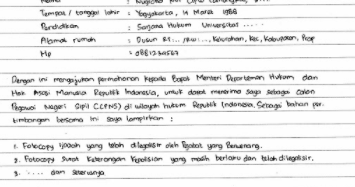 Tempat / tanggal lahir : Yogyakarta, 14 Maret 1986
Pendidikan : Sarjana Hukum Universitas ......
Alamat rumah : Dusun RT... /RW..., Kelurahan, Kec, Kabupaten, Prop
Hp :
Dengan ini mengajukan permohonan kepada Bapak Menteri Departemen Hukum dan
Hak Asasi Manusia Republik Indonesia, untuk dapat menerima saya sebagai Calon
Pegawai Negeri Sipil (CPNS) di wilayah hukum Republik Indonesia. Sebagai bahan per-
timbangan bersama ini saya lampirkan :
1. Fotocopy Ijazah yang telah dilegalisir oleh Pejabat yang Berwenang.
2. Fotocopy Surat Keterangan Kepolisian yang masih berlaku dan telah dilegalisir.
3. ..... dan seterusnya